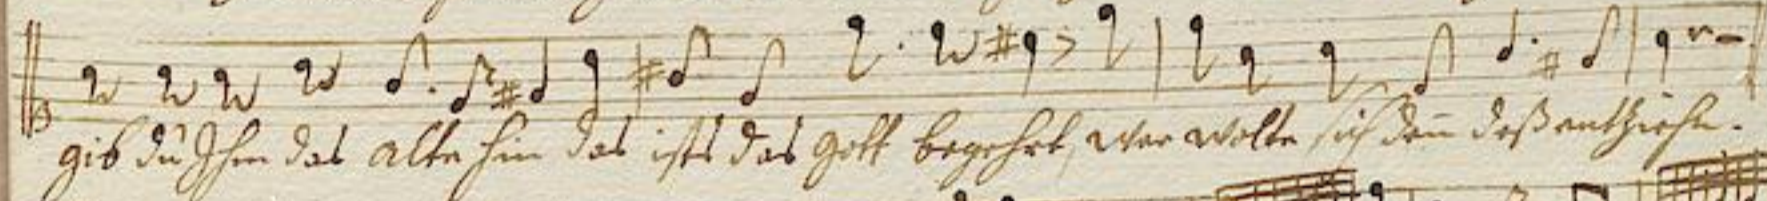 gib du Ihm das alte hin das ists das Gott begehrt, wer wolte sich deñ deß entziehn.